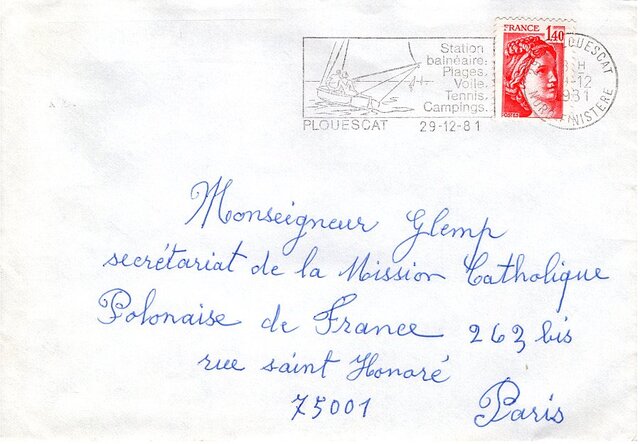 Station
balnéaire.
Plages.
Voile.
Tennis.
Campings.
PLOUESCAT 29-12-81
FRANCE
1,40
PLOUESCAT
-12
1981
NORD FINISTERE
Monseigneur Glemp
secrétariat de la Mission Catholique
Polonaise de France 263 bis
rue saint Honoré
75001 Paris